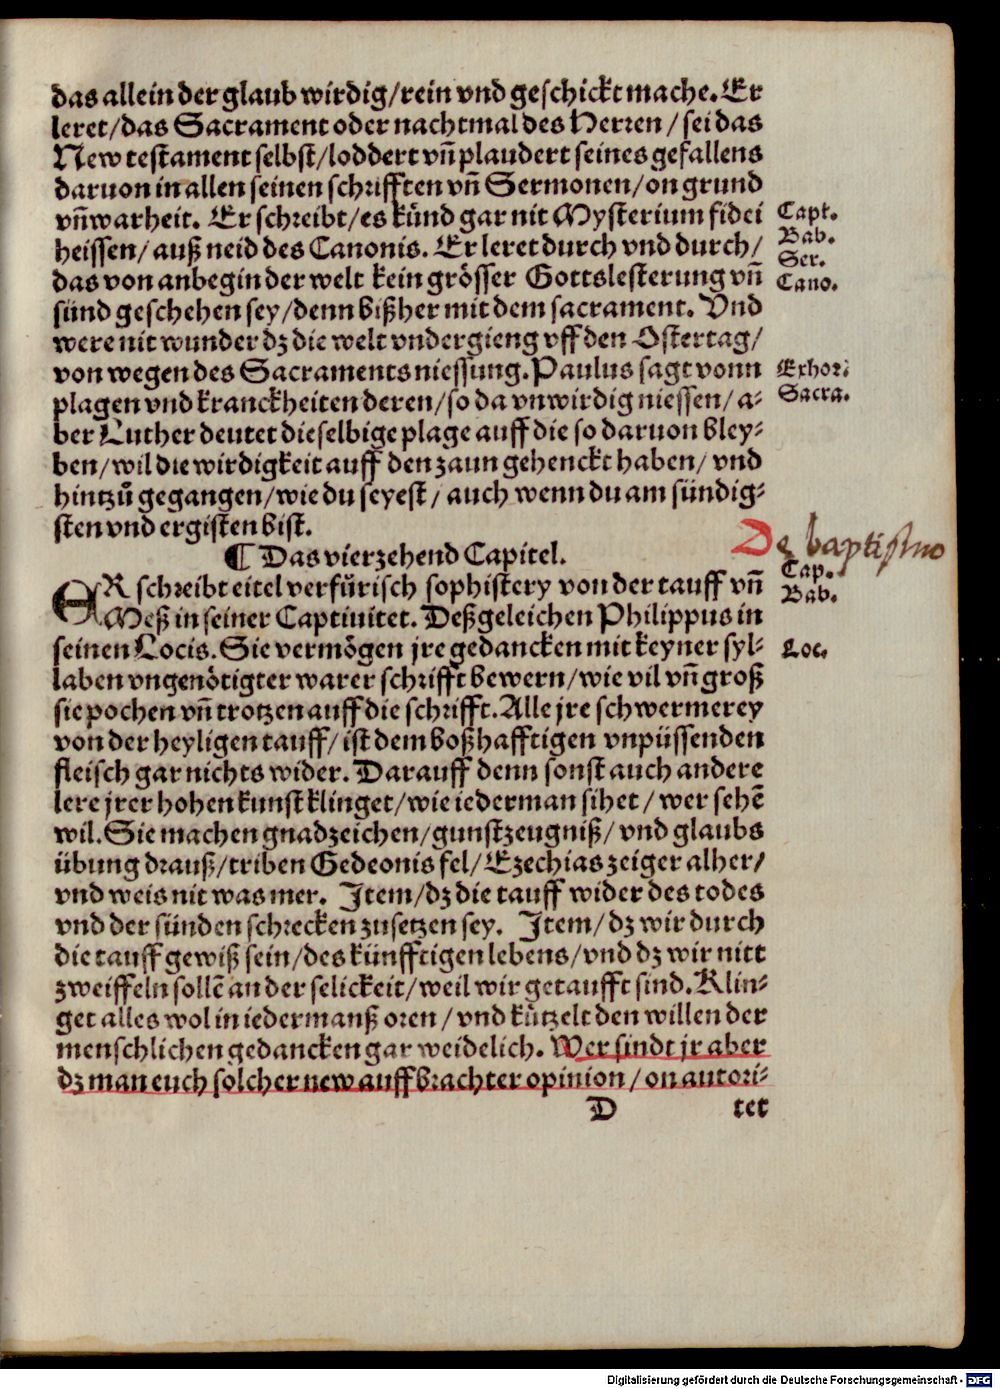 das allein der glaub wirdig/rein vnd geschickt mache. Er
leret/das Sacrament oder nachtmal des Herren/ sei das
New testament selbst/loddert vñ plaudert seines gefallens
daruon in allen seinen schrifften vñ Sermonen/on grund
vñ warheit. Er schreibt/es künd gar nit Mysterium fidei
Capt.
heissen/ auß neid des Canonis. Er leret durch vnd durch/
Bab.
Ser.
das von anbegin der welt kein grösser Gottslesterung vñ
Cano.
sünd geschehen sey/denn bißher mit dem sacrament. Vnd
were nit wunder dz die welt vndergieng vff den Ostertag/
von wegen des Sacraments niessung. Paulus sagt vonn
Exhor:
plagen vnd kranckheiten deren/so da vnwirdig niessen/ a-
Sacra.
ber Luther deutet dieselbige plage auff die so daruon bley-
ben/wil die wirdigkeit auff den zaun gehenckt haben/ vnd
hintzů gegangen/wie du seyest/ auch wenn du am sündig-
sten vnd ergisten bist.
De baptismo
¶ Das vierzehend Capitel.
Cap.
ER schreibt eitel verfürisch sophistery von der tauff vñ
Bab.
Meß in seiner Captiuitet. Deßgeleichen Philippus in
seinen Locis. Sie vermögen jre gedancken mit keyner syl-
Loc.
laben vngenötigter warer schrifft bewern/wie vil vñ groß
sie pochen vñ trotzen auff die schrifft. Alle jre schwermerey
von der heyligen tauff/ist dem boßhafftigen vnpüssenden
fleisch gar nichts wider. Darauff denn sonst auch andere
lere jrer hohen kunst klinget/wie iederman sihet/ wer sehē
wil. Sie machen gnadzeichen/gunstzeugniß/ vnd glaubs
übung drauß/triben Gedeonis fel/ Ezechias zeiger alher/
vnd weis nit was mer. Item/dz die tauff wider des todes
vnd der sünden schrecken zusetzen sey. Item/ dz wir durch
die tauff gewiß sein/des künfftigen lebens/vnd dz wir nitt
zweiffeln sollē an der selickeit/weil wir getaufft sind. Klin-
get alles wol in iedermanß oren/ vnd kützelt den willen der
menschlichen gedancken gar weidelich. Wer sindt jr aber
dz man euch solcher new auffbrachter opinion/on autori-
D tet
Digitalisierung gefördert durch die Deutsche Forschungsgemeinschaft - DFG